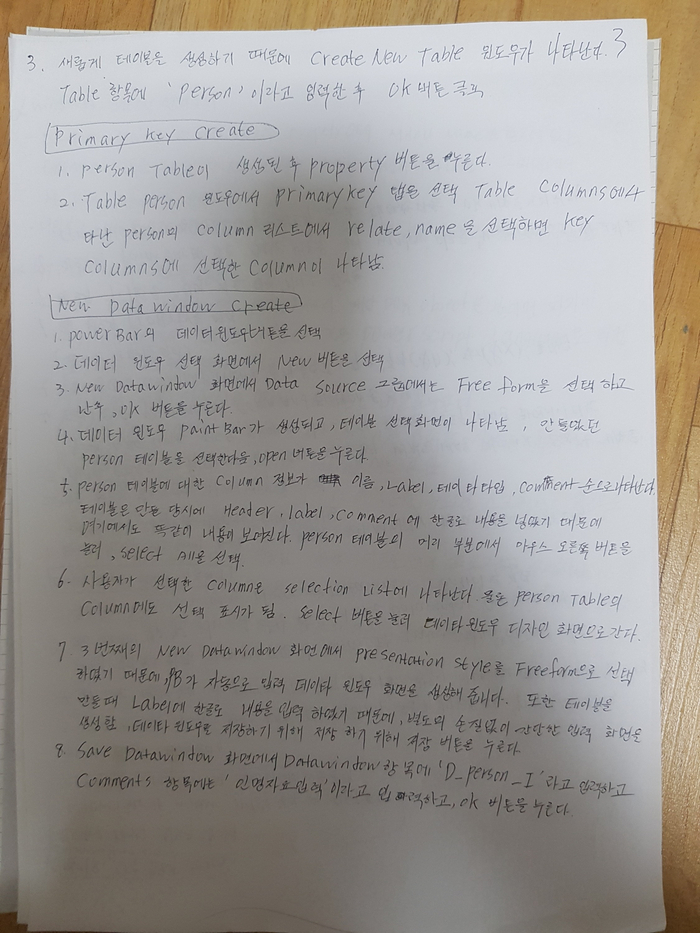 3
3. 새롭게 테이블을 생성하기 때문에 Create New Table 윈도우가 나타난다.
Table 항목에 'person'이라고 입력한 후 OK 버튼 클릭
Primary key create
1. person Table이 생성된 후 property 버튼을 누른다.
2. Table person 윈도우에서 primary key 탭을 선택 Table Columns에 나
타난 person의 column 리스트에서 relate, name 을 선택하면 key
columns에 선택한 column이 나타남.
New Data window create
1. power Bar의 데이터윈도우버튼을 선택
2. 데이터 윈도우 선택 화면에서 New 버튼을 선택
3. New Datawindow 화면에서 Data Source 그룹에서는 Free form을 선택 하고
난후, OK 버튼을 누른다.
4. 데이터 윈도우 paint Bar가 생성되고, 테이블 선택화면이 나타남, 만들었던
person 테이블을 선택한다음, open 버튼을 누른다
5. person 테이블에 대한 column 정보가 이름, Label, 데이타 타입, comment 순으로 나타난다.
테이블을 만들 당시에 Header, label, comment 에 한글로 내용을 넣었기 때문에
여기에서도 똑같이 내용이 보여진다. person 테이블의 머리 부분에서 마우스 오른쪽 버튼을
눌러, select All을 선택.
6. 사용자가 선택한 column은 selection List에 나타난다. 물론 person Table의
column에도 선택 표시가 됨. select 버튼을 눌러 데이타 윈도우 디자인 화면으로 간다.
7. 3번째의 New Datawindow 화면에서 presentation style를 Freeform으로 선택
하였기 때문에, PB가 자동으로 입력 데이타 윈도우 화면을 생성해 줍니다. 또한 테이블을
만들때 Label에 한글로 내용을 입력 하였기 때문에, 별도의 손질없이 간단한 입력 화면을
생성함, 데이타 윈도우로 저장하기 위해 저장 하기 위해 저장 버튼을 누른다.
8. Save Datawindow 화면에서 Datawindow 항목에 'D_person_I'라고 입력하고
Comments 항목에는 '인명자료입력'이라고 입력하고, OK 버튼을 누른다.